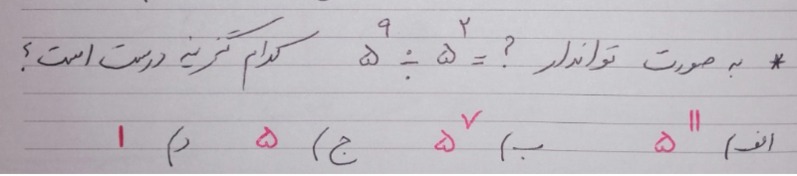 * به صورت تواندار ? = ۵^۹ ÷ ۵^۲ کدام گزینه درست است؟
الف) ۵^۱۱ ب) ۵^۷ ج) ۵ د) ۱